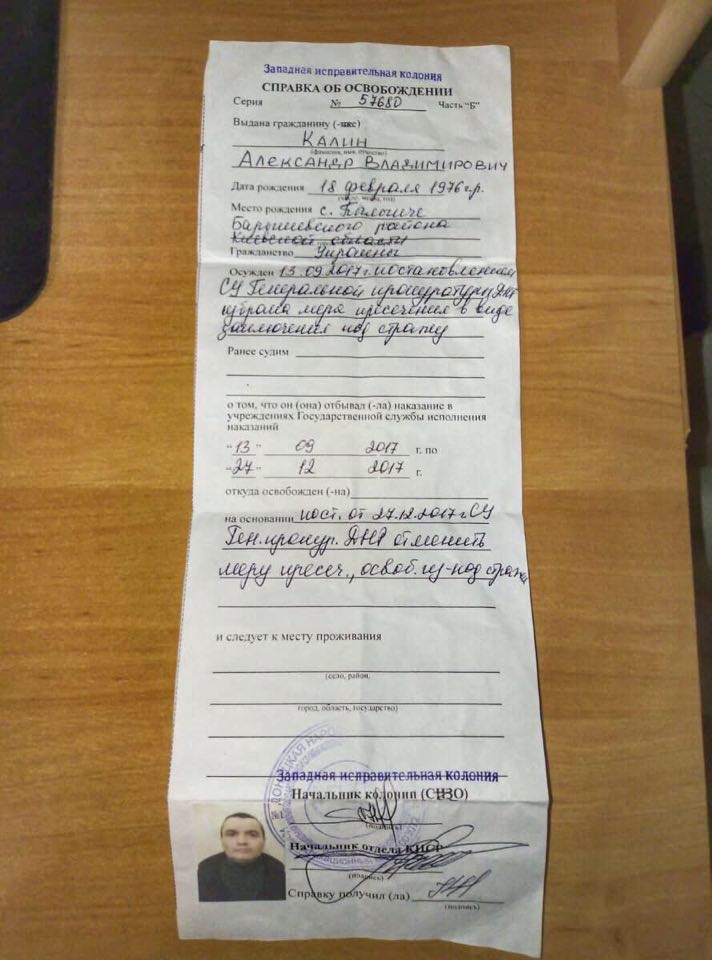 Западная исправительная колония
СПРАВКА ОБ ОСВОБОЖДЕНИИ
Серия № 57680 Часть "Б"
Выдана гражданину (-шке)
КАЛИН
(фамилия, имя, отчество)
АЛЕКСАНДР ВЛАДИМИРОВИЧ
Дата рождения 18 февраля 1976 г.р.
(число, месяц, год)
Место рождения с.
Барышевского района
Киевской области
Гражданство Украины
Осужден 13.09.2017г. постановлением
СУ Генеральной прокуратуры ДНР
избрана мера пресечения в виде
заключения под стражу
Ранее судим
о том, что он (она) отбывал (-ла) наказание в
учреждениях Государственной службы исполнения
наказаний
"13" 09 2017 г. по
"27" 12 2017 г.
откуда освобожден (-на)
на основании пост. от 27.12.2017г. СУ
Ген.прокур. ДНР отменить
меру пресеч., освоб. из-под стражи
и следует к месту проживания
(село, район,
город, область, государство)
ДОНЕЦКАЯ НАРО
Западная исправительная колония
Начальник колонии (СИЗО)
(подпись)
Начальник отдела КИСР
(подпись)
Справку получил (ла)
(подпись)